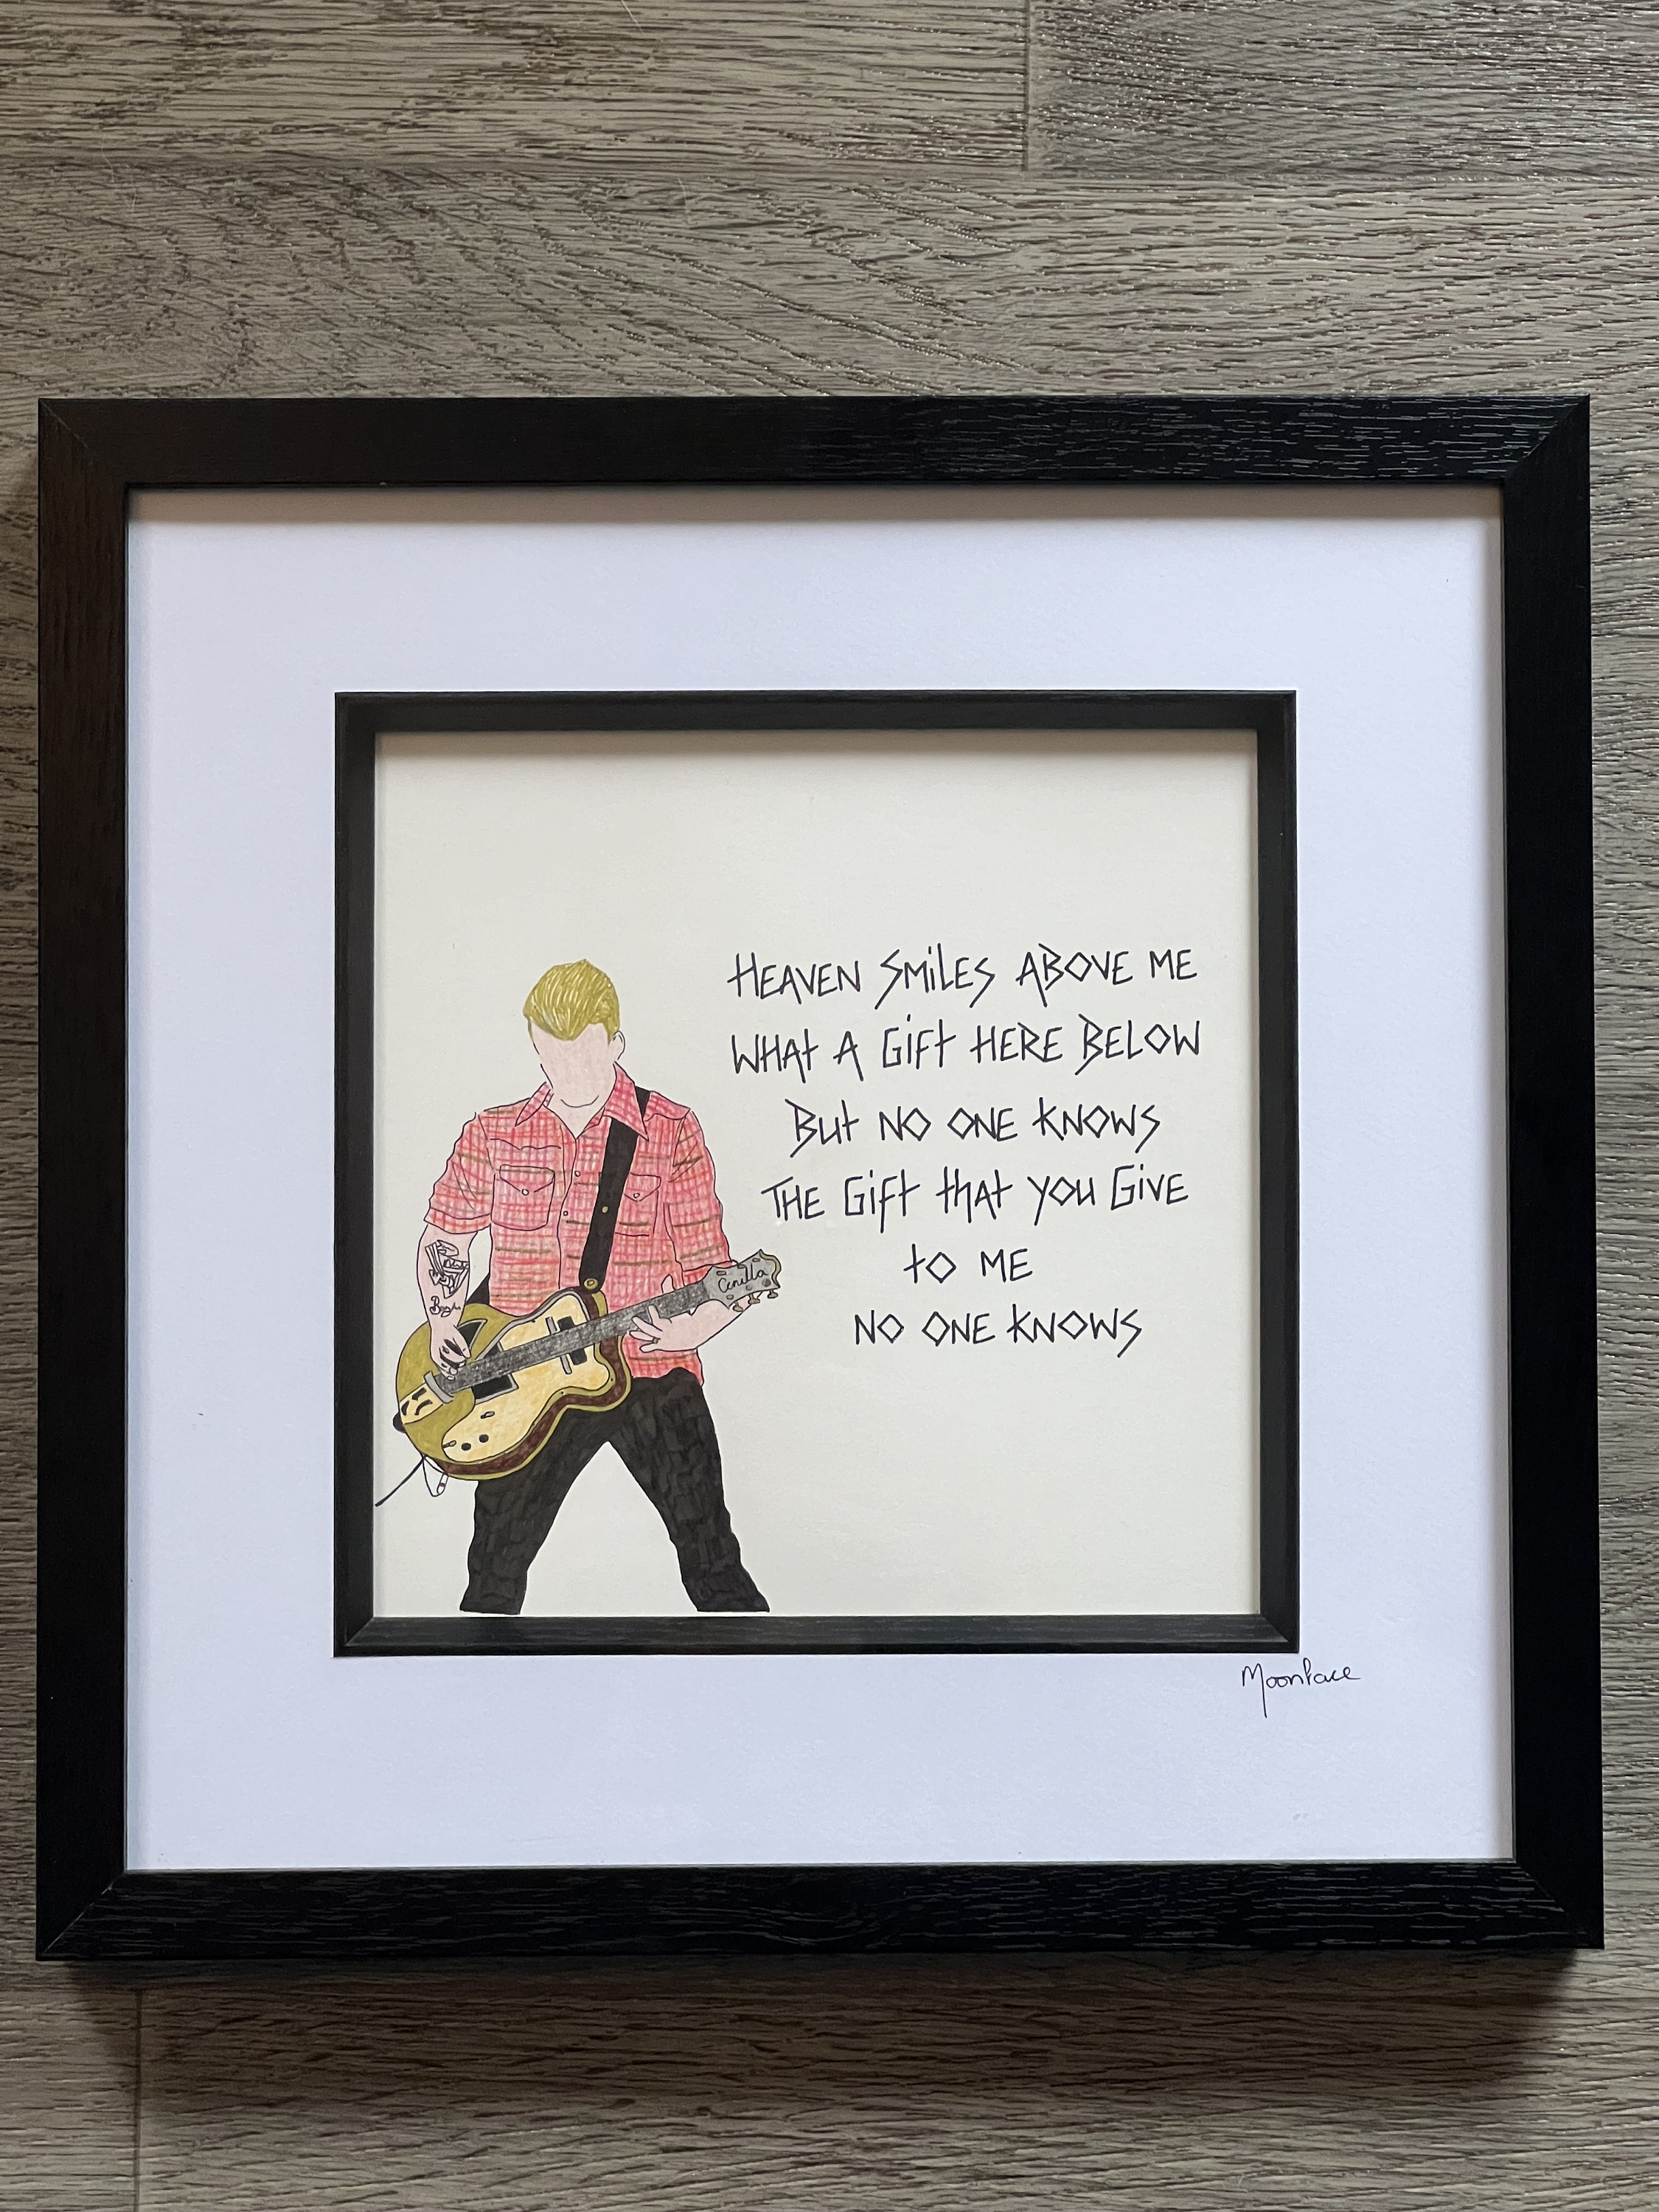 HEAVEN SMiLES ABOVE ME
WHAt A GiFt HERE BELOW
But NO ONE KNOWS
THE Gift that you GiVE
tO ME
NO ONE KNOWS
Camilla
Moonface